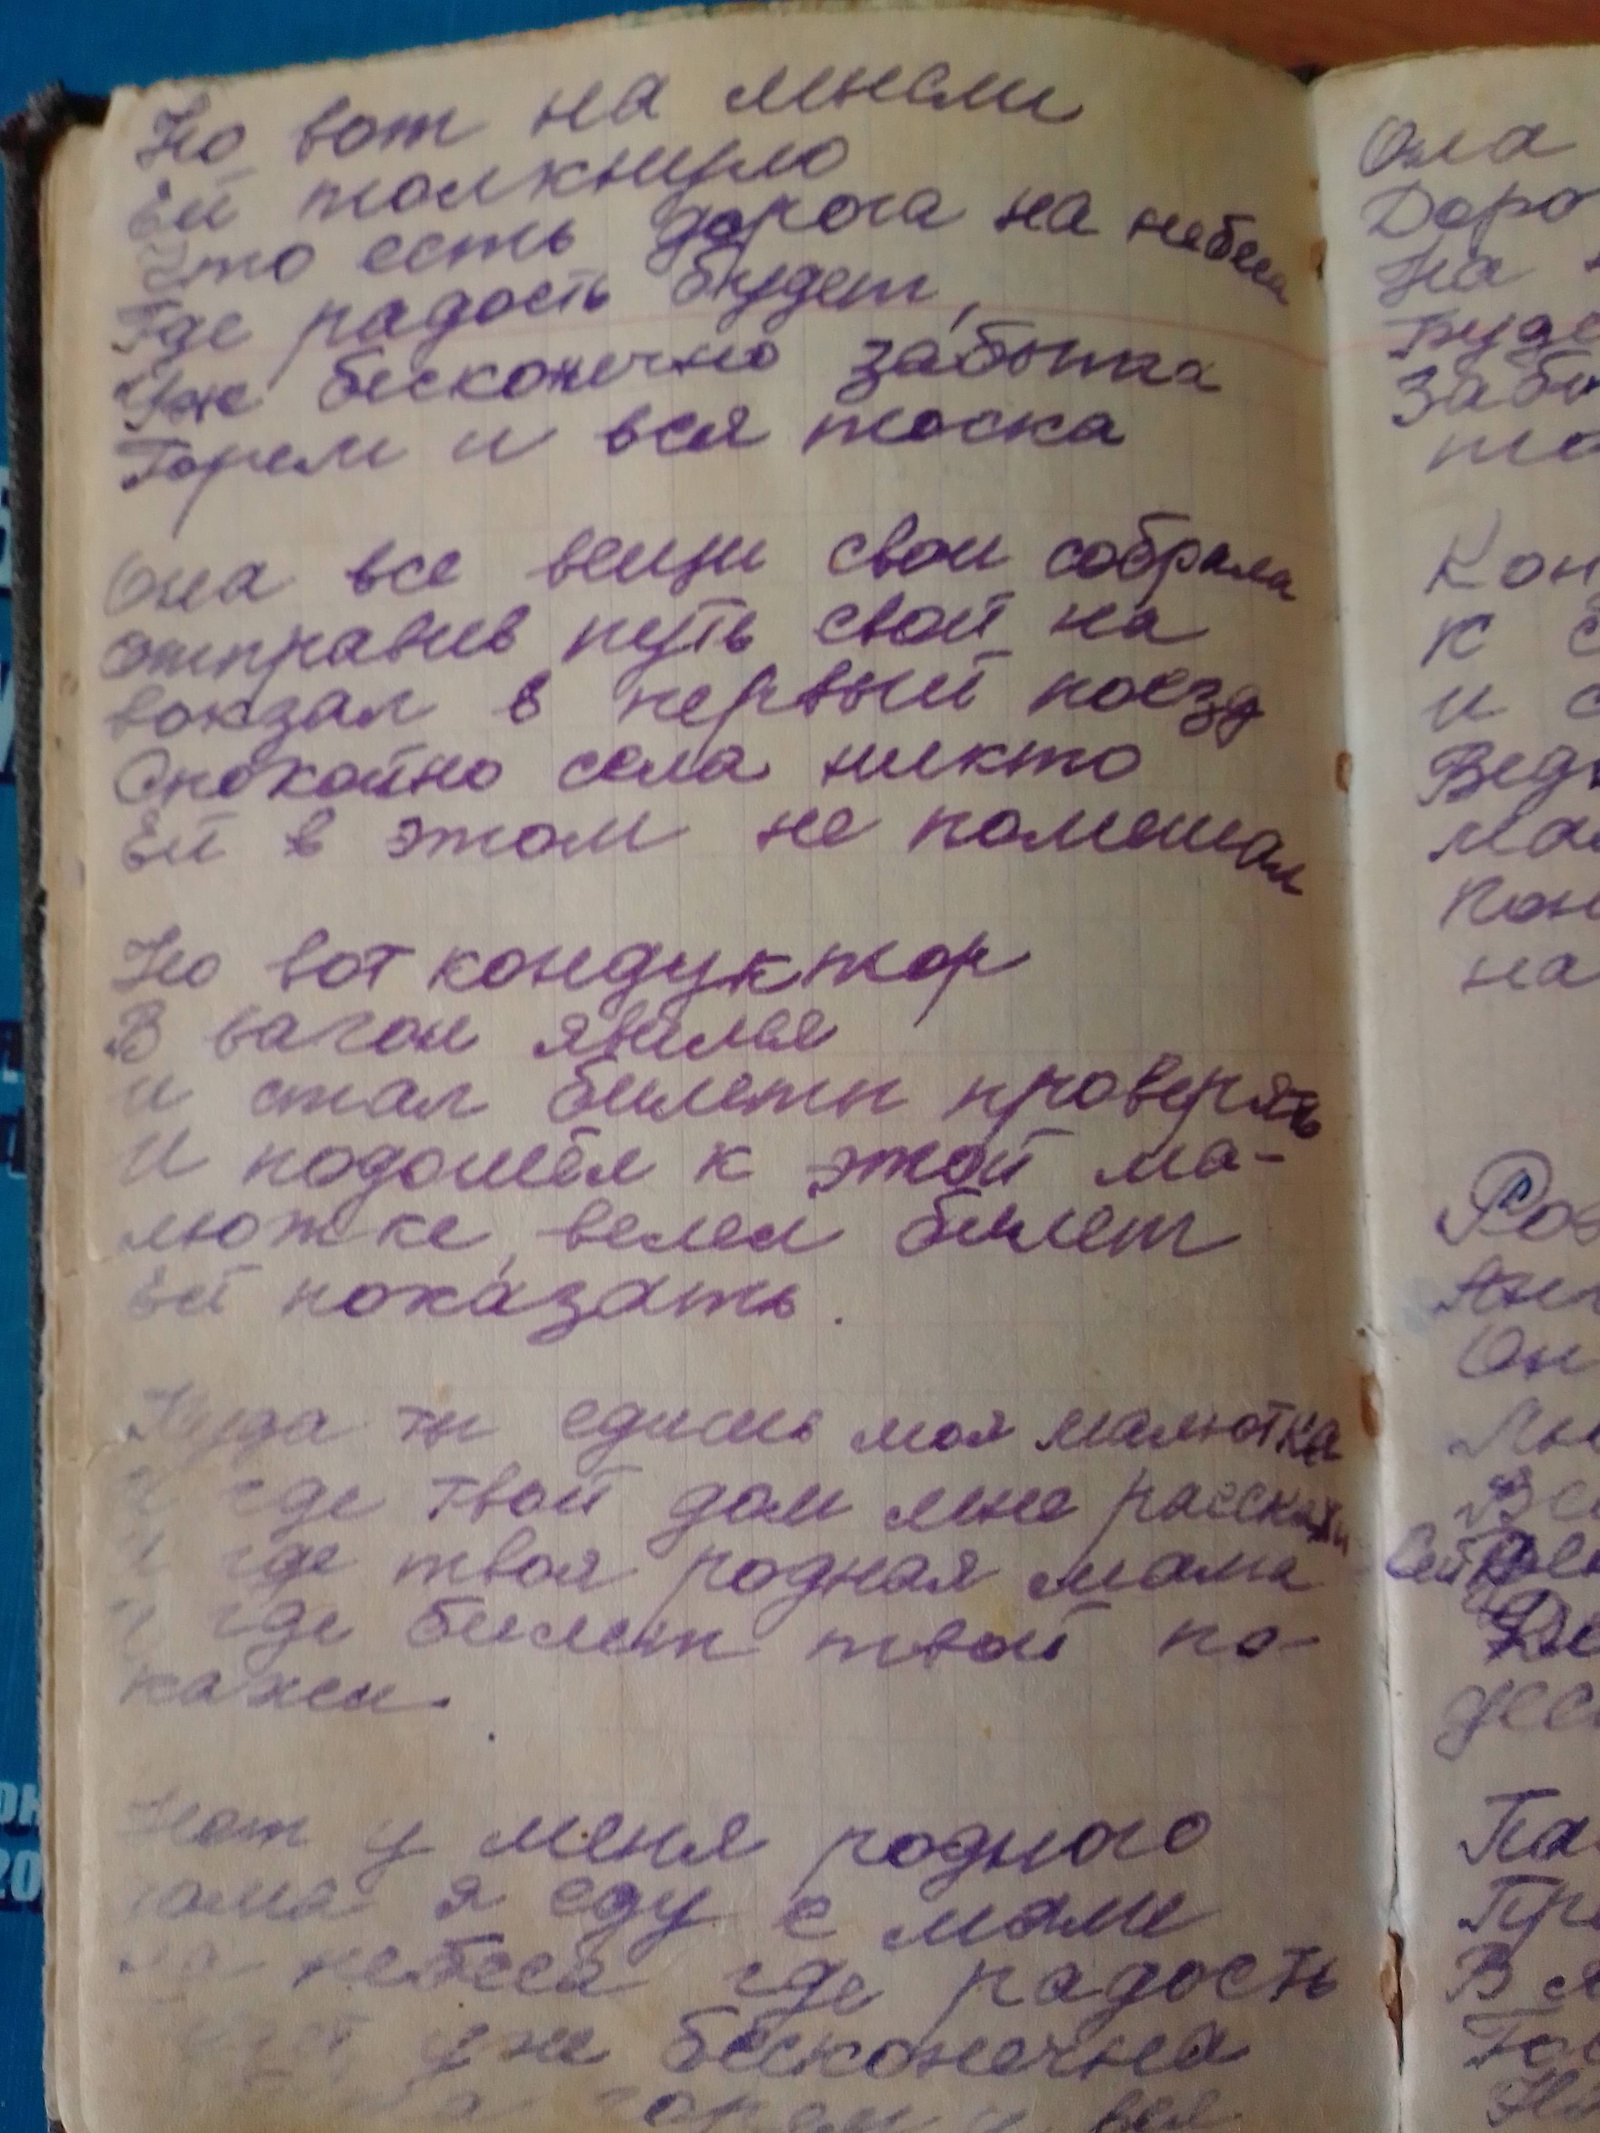 Но вот на мысли
Ей толкнуло
Что есть дорога на небеса
Где радость будет,
Уж бесконечно забыта
Горем и вся тоска
Она все вещи свои собрала
отправив путь свой на
вокзал в первый поезд
Спокойно села никто
Ей в этом не помешал
Но вот кондуктор
В вагон явился
и стал билеты проверять
И подошёл к этой ма-
лютке, велел билет
Ей показать.
Куда ты едишь моя малютка
И где твой дом мне расскажи
И где твоя родная мама
И где билет твой по-
кажи.
Нет у меня родного
дома я еду к маме
на небеса где радость
уже бесконечна
горем и вся
Она
Доро
На
Буде
Забы
то
Кон
К
и с
Ведь
мам
пон
на
Роз
Анг
Он
Мы
Вс
Де
дес
Па
Пре
В я
Гос